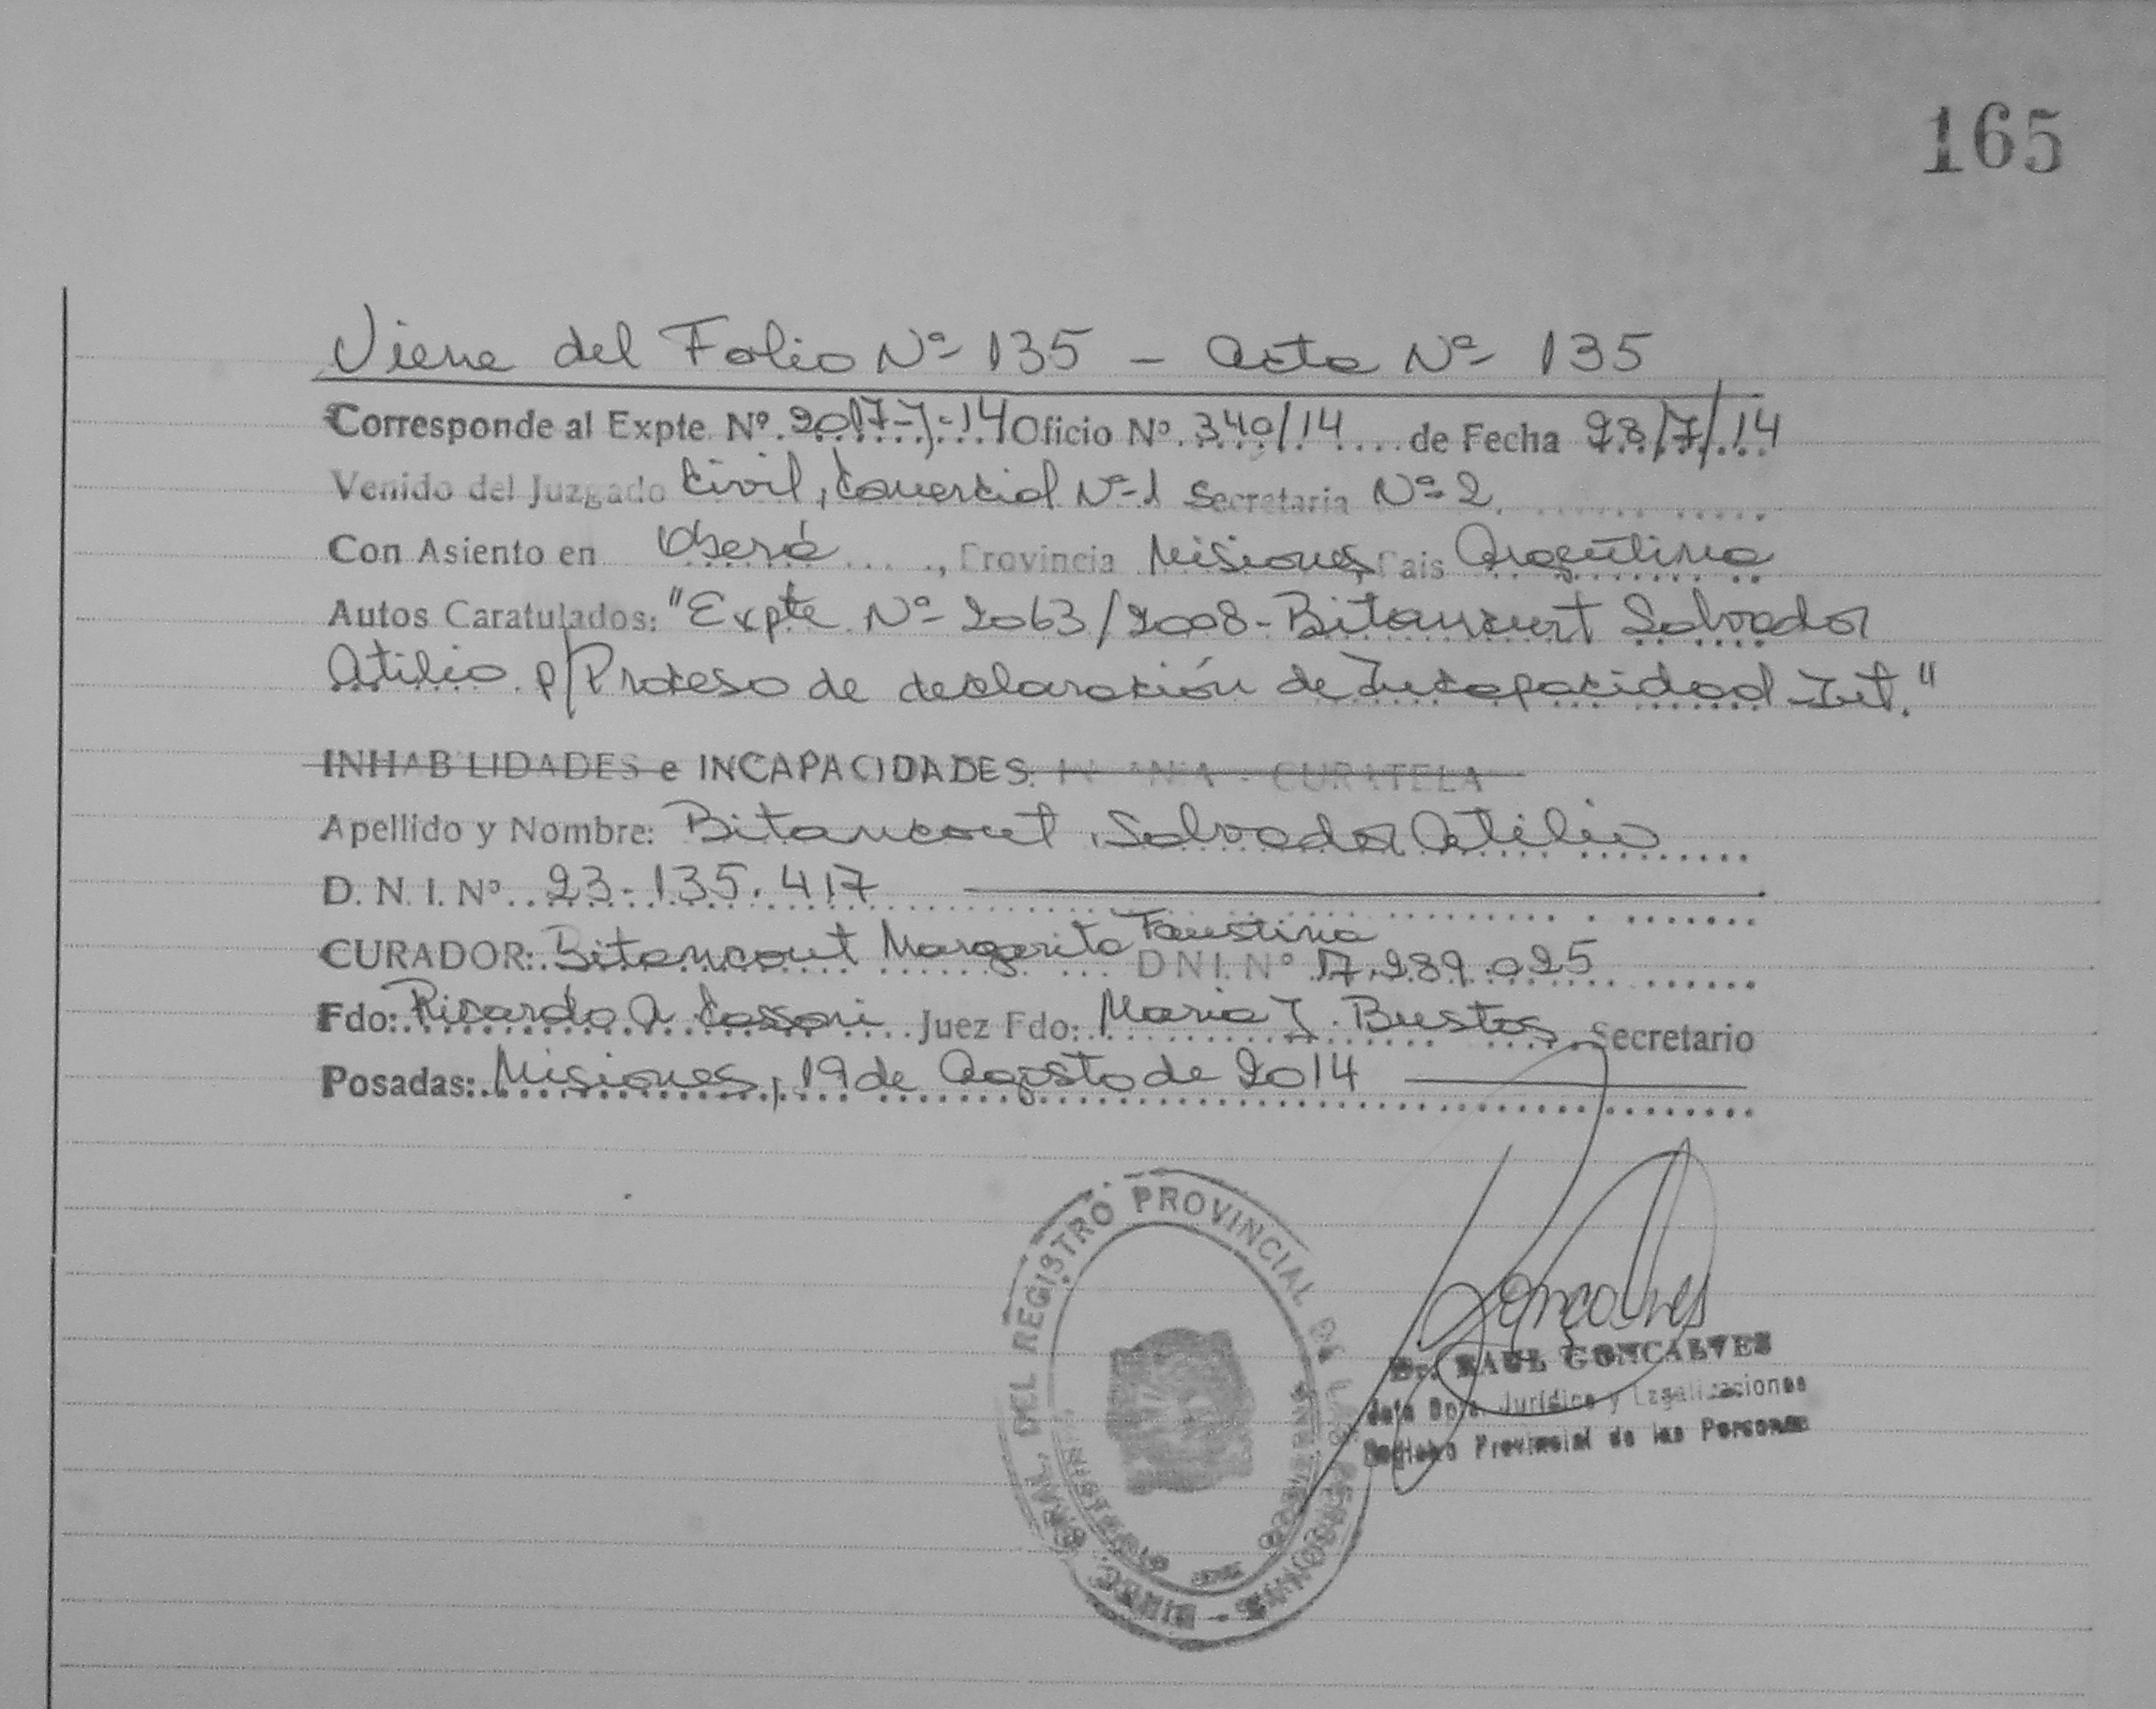 165
Viene del Folio Nº 135 - Acta Nº 135
Corresponde al Expte. Nº. 2017-J-14 Oficio Nº. 340/14 .... de Fecha 28/7/14
Venido del Juzgado Civil, Comercial Nº 1 Secretaria Nº 2
Con Asiento en Oberá ...., Provincia Misiones, Pais Argentina
Autos Caratulados: "Expte Nº 2063/2008 - Bitancurt Salvador
Atilio p/Proceso de declaración de Incapacidad Int."
INHABILIDADES e INCAPACIDADES. INSANIA - CURATELA
Apellido y Nombre: Bitancourt, Salvador Atilio
D. N. I. Nº .. 23.135.417
CURADOR: Bitancourt Margarita Faustina DNI. Nº 17.289.025
Fdo: Ricardo A. Cassoni .. Juez Fdo: Maria J. Bustos Secretario
Posadas: Misiones, 19 de Agosto de 2014
DIREC. GRAL. DEL REGISTRO PROVINCIAL DE LAS PERSONAS
MINISTERIO DE GOBIERNO
Goncalves
Dr. RAUL GONCALVES
Jefe Dpto. Jurídico y Legalizaciones
Registro Provincial de las Personas